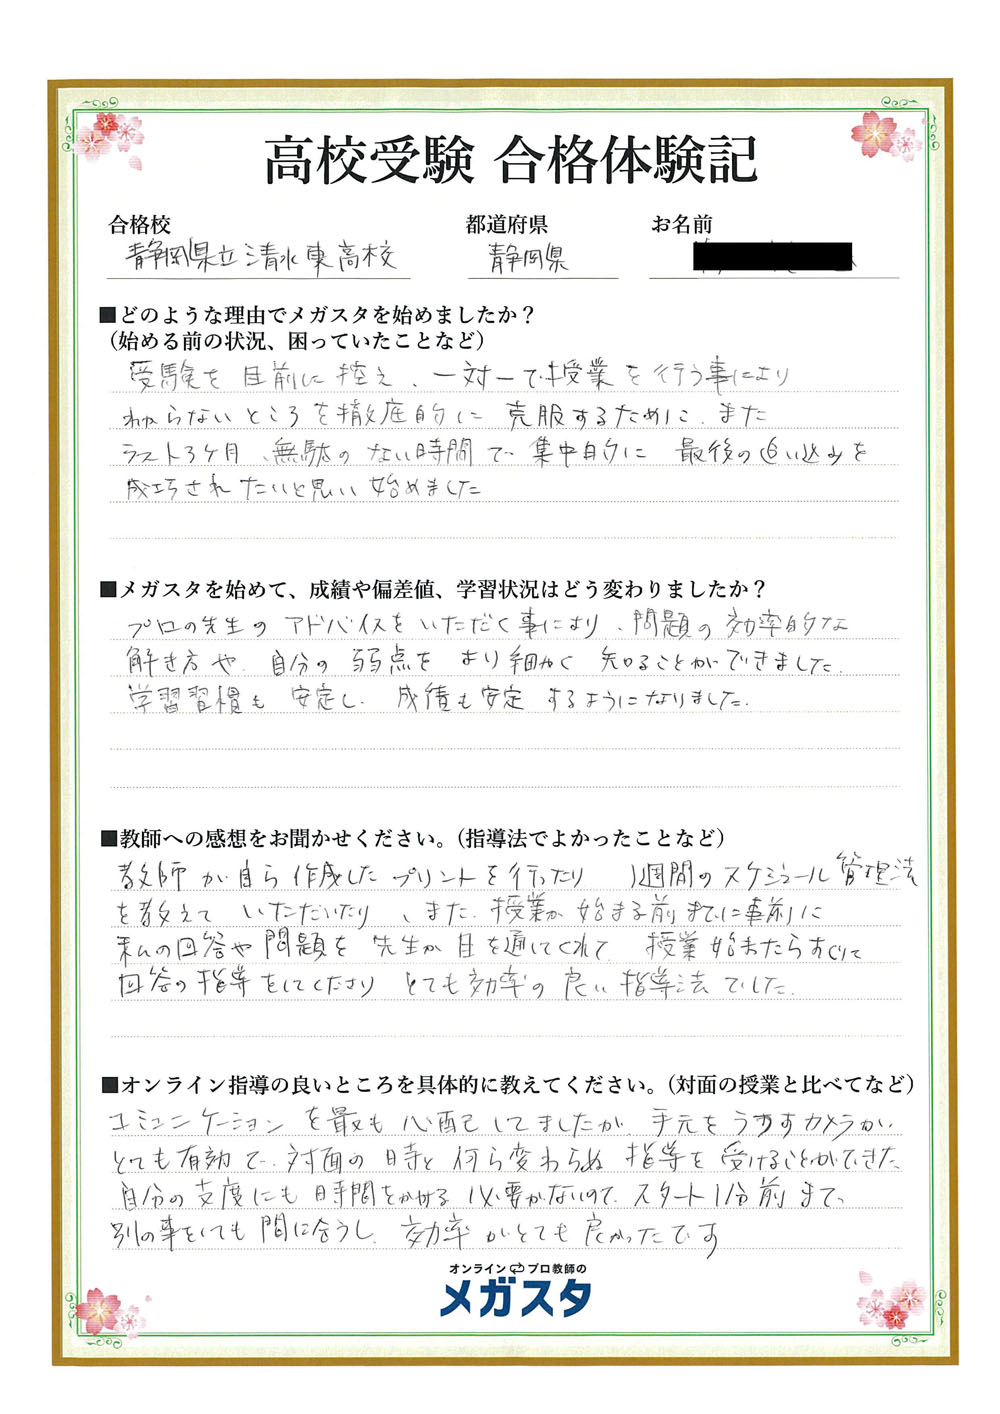 高校受験 合格体験記
合格校 都道府県 お名前
静岡県立清水東高校 静岡県
■どのような理由でメガスタを始めましたか？
（始める前の状況、困っていたことなど）
受験を目前に控え、一対一で授業を行う事により
わからないところを徹底的に克服するために、また
ラスト3ヶ月、無駄のない時間で集中的に最後の追い込みを
成功されたいと思い始めました
■メガスタを始めて、成績や偏差値、学習状況はどう変わりましたか？
プロの先生のアドバイスをいただく事により、問題の効率的な
解き方や、自分の弱点をより細かく知ることができました。
学習習慣も安定し、成績も安定するようになりました。
■教師への感想をお聞かせください。（指導法でよかったことなど）
教師が自ら作成したプリントを行ったり 1週間のスケジュール管理法
を教えていただいたり、また、授業が始まる前までに事前に
私の回答や問題を先生が目を通してくれて、授業始まったらすぐに
回答の指導をしてくださりとても効率の良い指導法でした。
■オンライン指導の良いところを具体的に教えてください。（対面の授業と比べてなど）
コミュニケーションを最も心配してましたが、手元をうつすカメラがい
とても有効で、対面の時と何ら変わらぬ指導を受けることができた。
自分の支度にも時間をかける必要がないので、スタート1分前まで、
別の事をしても間に合うし、効率がとても良かったです
オンライン プロ教師の
メガスタ